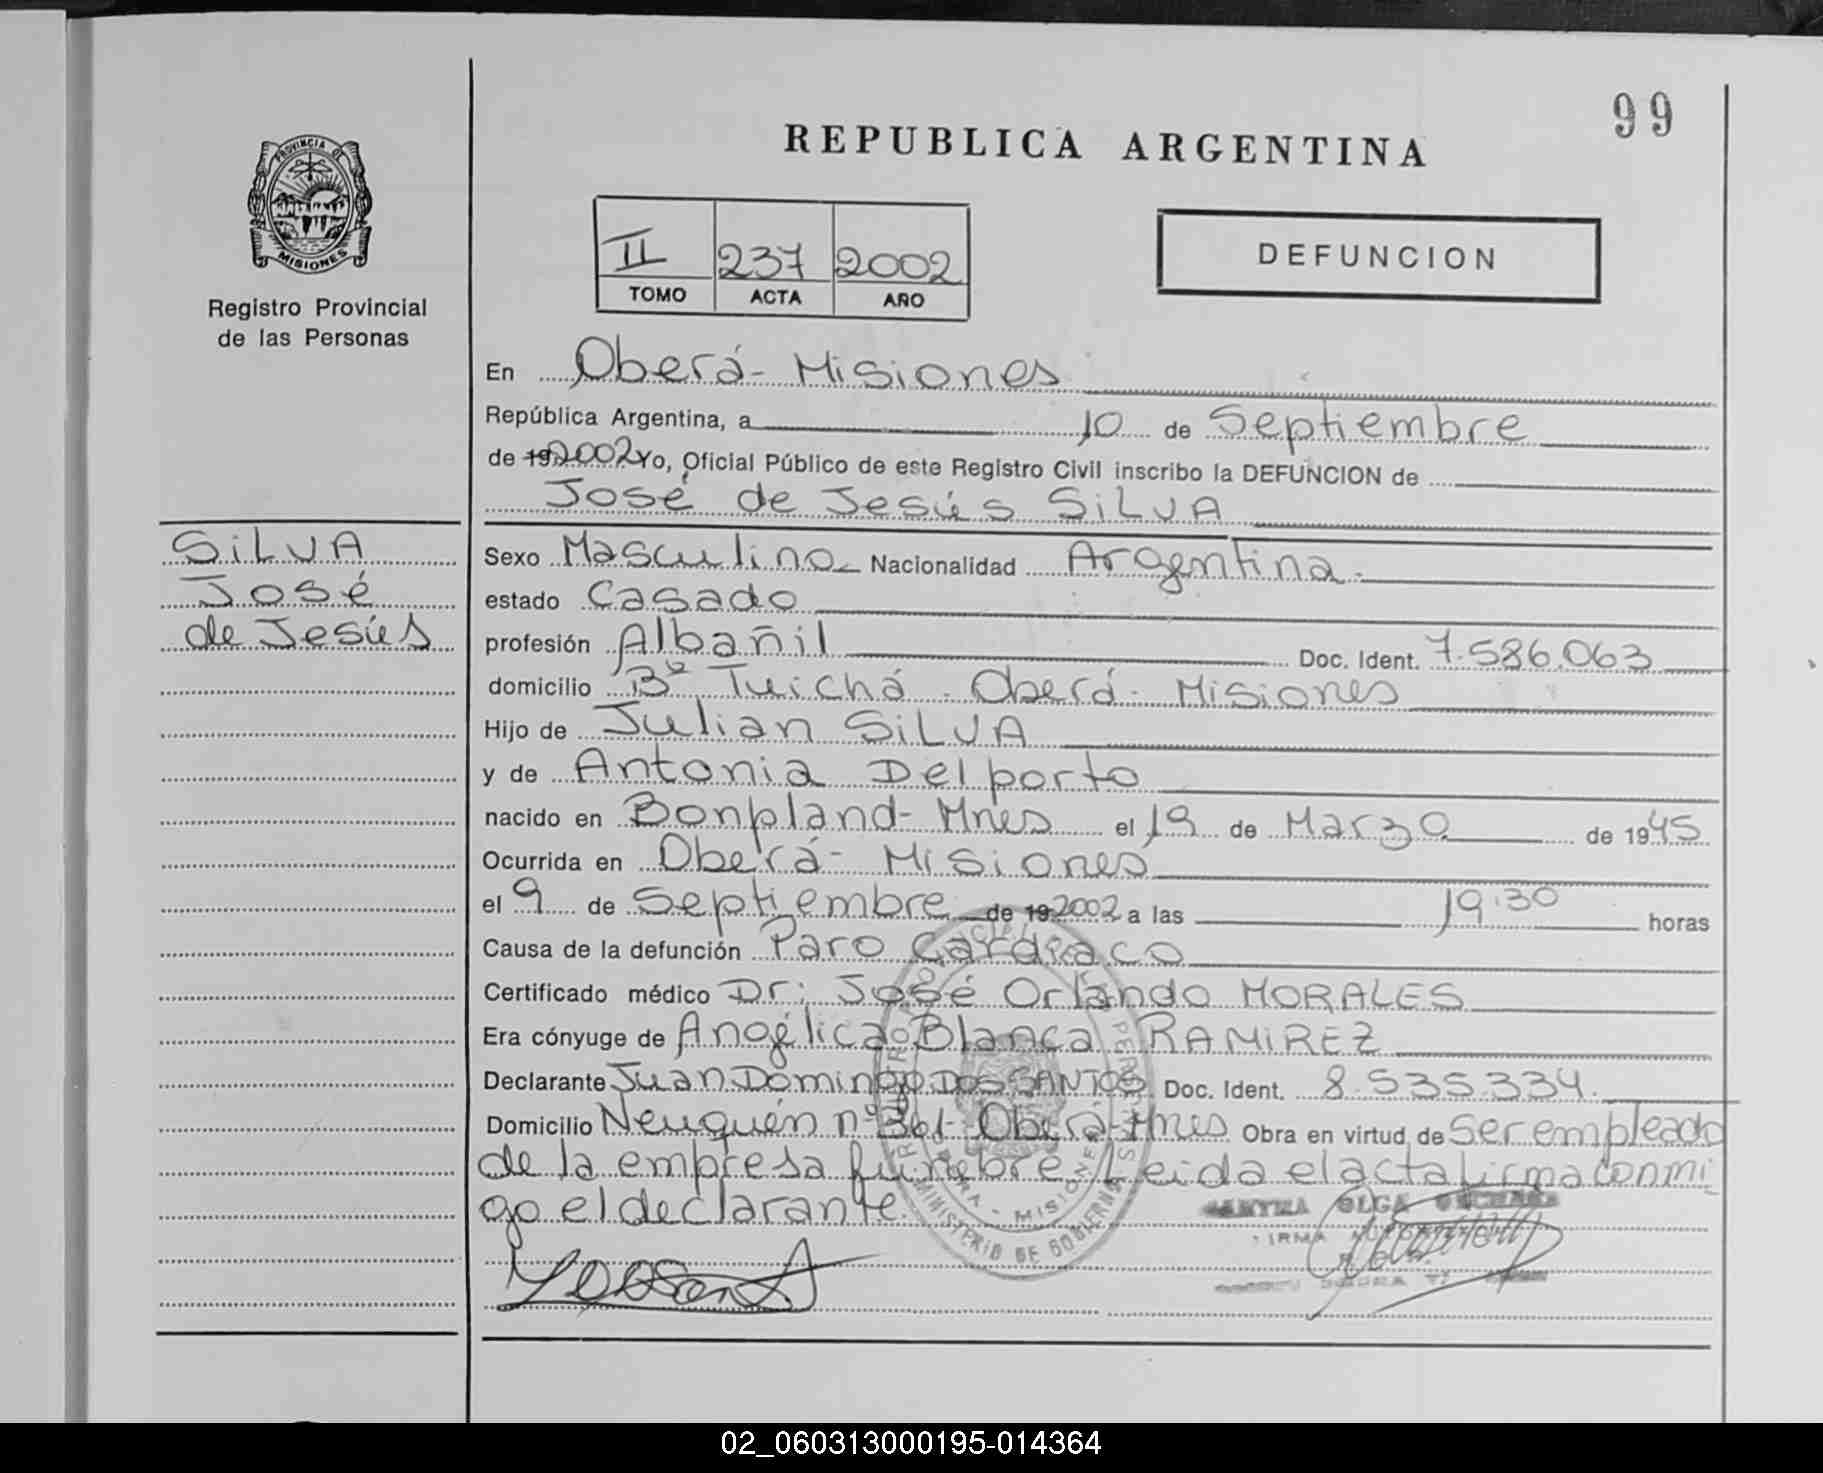 99
REPUBLICA ARGENTINA
PROVINCIA DE
MISIONES
Registro Provincial
de las Personas
II 237 2002
TOMO ACTA AÑO
DEFUNCION
En Oberá - Misiones
República Argentina, a 10 de Septiembre
de 19 2002 Yo, Oficial Público de este Registro Civil inscribo la DEFUNCION de
José de Jesús SILVA
SILVA
José
de Jesús
Sexo Masculino Nacionalidad Argentina.
estado Casado
profesión Albañil Doc. Ident. 7.586.063
domicilio Bº Tuichá - Oberá - Misiones
Hijo de Julian SILVA
y de Antonia Delporto
nacido en Bonpland - Mnes el 19 de Marzo de 1945
Ocurrida en Oberá - Misiones
el 9 de Septiembre de 19 2002 a las 19:30 horas
Causa de la defunción Paro Cardíaco
Certificado médico Dr: José Orlando MORALES
Era cónyuge de Angélica Blanca RAMIREZ
Declarante Juan Domingo DOS SANTOS Doc. Ident. 8.535.334.
Domicilio Neuquén nº 361 - Oberá - Mnes Obra en virtud de Ser empleado
de la empresa fúnebre. Leida el acta firma conmi
go el declarante.
MISIONES
MINISTERIO DE GOBIERNO
OLGA
FIRMA
02_060313000195-014364